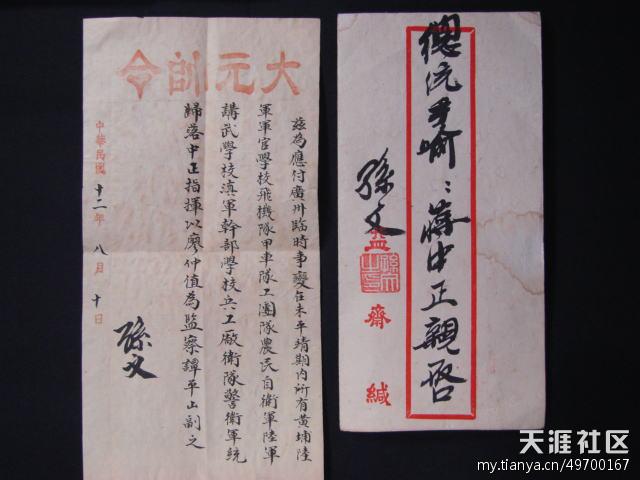 大元帥令
茲為應付廣州臨時事變在未平靖期内所有黃埔陸
軍軍官學校飛機隊甲車隊工團隊農民自衛軍陸軍
講武學校滇軍幹部學校兵工廠衛隊警衛軍統
歸蔣中正指揮以廖仲值為監察譚平山副之
中華民國十二年八月十日
孫文
總統手喻：蔣中正親啓
孫文
益齋緘
天涯社区
my.tianya.cn/49700167